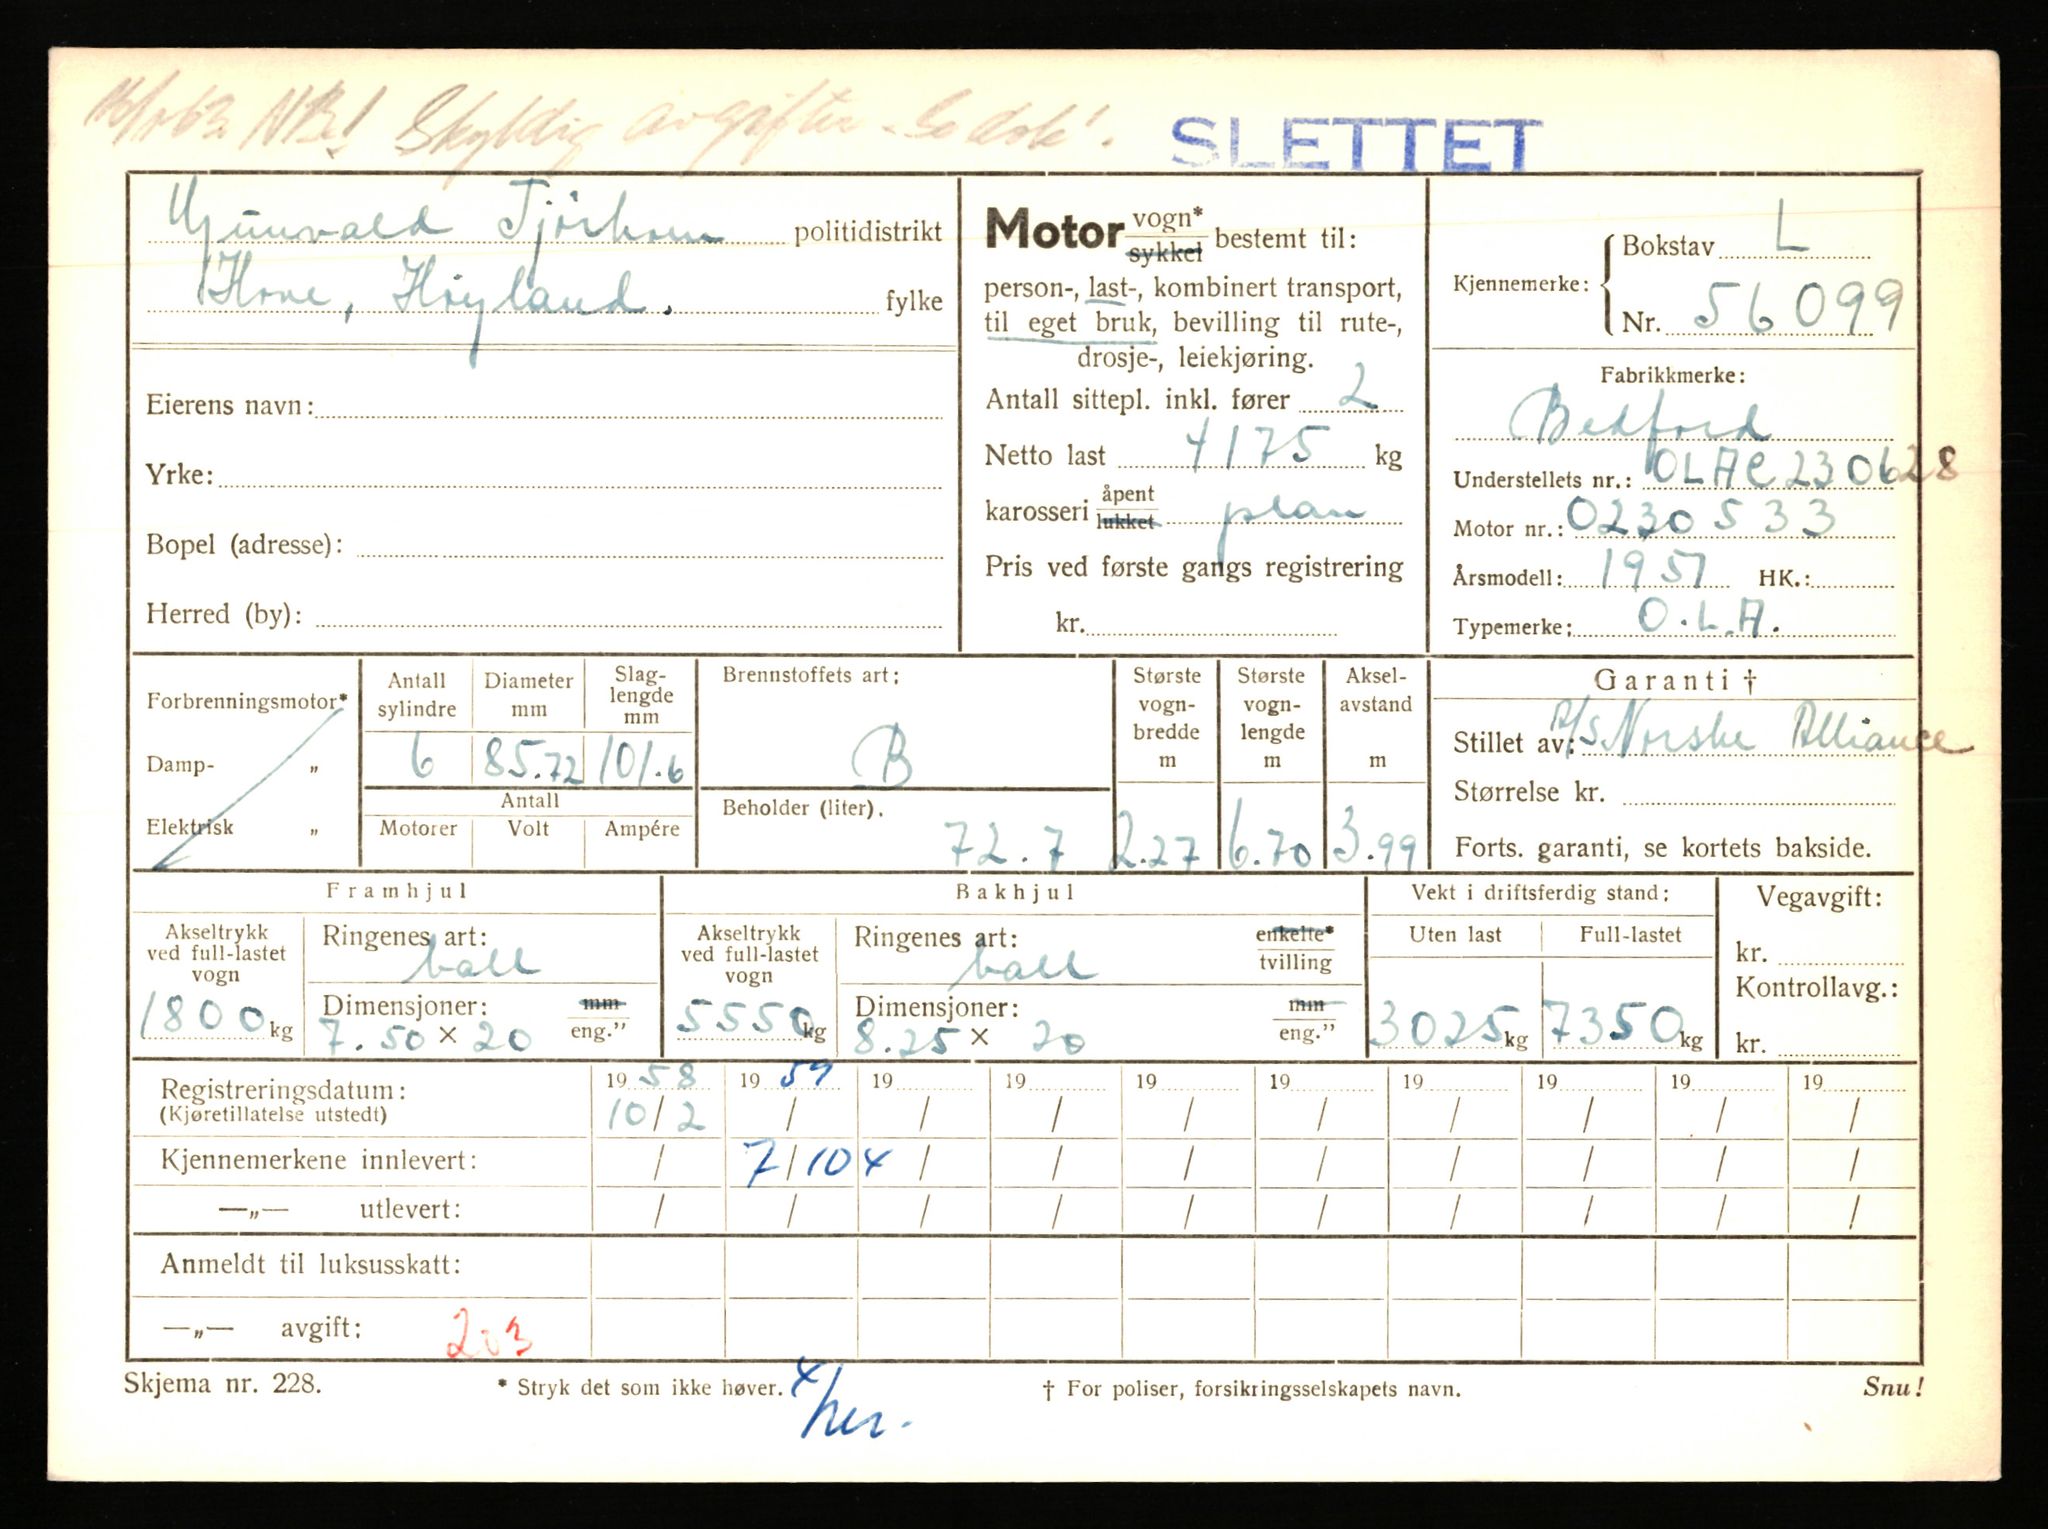 NB! Skyldig avgifter
SLETTET
Gunvald Tjörhom politidistrikt
Hove, Höyland. fylke
Eierens navn:
Yrke:
Bopel (adresse):
Herred (by):
Motor vogn* sykkel bestemt til:
person-, last-, kombinert transport,
til eget bruk, bevilling til rute-,
drosje-, leiekjøring.
Antall sittepl. inkl. fører 2
Netto last 4175 kg
karosseri åpent lukket plan
Pris ved første gangs registrering
kr.
Kjennemerke: Bokstav L
Nr. 56099
Fabrikkmerke:
Bedford
Understellets nr.: OLAC230628
Motor nr.: 0230533
Årsmodell: 1951 HK.:
Typemerke: O.L.A.
Forbrenningsmotor*
Damp- „
Elektrisk „
Antall sylindre 6
Diameter mm 85.72
Slag-lengde mm 101.6
Antall
Motorer Volt Ampére
Brennstoffets art:
B
Beholder (liter). 72.7
Største vogn-bredde m 2.27
Største vogn-lengde m 6.70
Aksel-avstand m 3.99
Garanti †
Stillet av: A/S Norske Alliance
Størrelse kr.
Forts. garanti, se kortets bakside.
Framhjul
Akseltrykk ved full-lastet vogn 1800 kg
Ringenes art: ball
Dimensjoner: mm eng."
7.50 × 20
Bakhjul
Akseltrykk ved full-lastet vogn 5550 kg
Ringenes art: ball enkelte* tvilling
Dimensjoner: mm eng."
8.25 × 20
Vekt i driftsferdig stand:
Uten last Full-lastet
3025 kg 7350 kg
Vegavgift:
kr.
Kontrollavg.:
kr.
Registreringsdatum: 19 58 19 59 19 19 19 19 19 19 19 19
(Kjøretillatelse utstedt) 10/2 / / / / / / / / /
Kjennemerkene innlevert: / 7/10 x / / / / / / / /
—„— utlevert: / / / / / / / / / /
Anmeldt til luksusskatt:
—„— avgift: 203
Skjema nr. 228. * Stryk det som ikke høver. † For poliser, forsikringsselskapets navn. Snu!
x her.